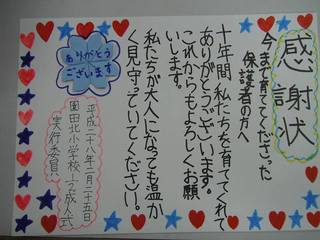 感謝状
今まで育ててくださった
保護者の方へ
十年間、私たちを育ててくれて
ありがとうございます。
これからもよろしくお願
いします。
私たちが大人になっても温か
く見守っていてください。
ありがとう
ございます
平成二十八年二月二十五日
園田北小学校1/2成人式
実行委員